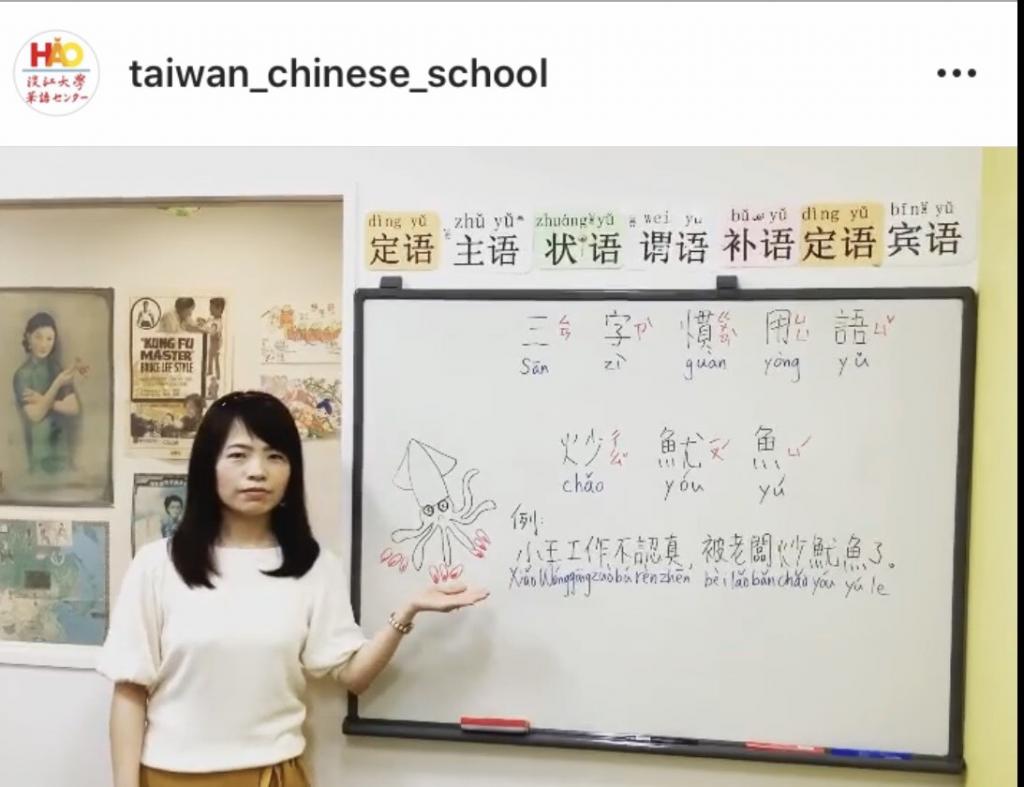 HǍO
淡江大學
華語センター
taiwan_chinese_school
dìng yǔ zhǔ yǔ zhuàng yǔ wèi yǔ bǔ yǔ dìng yǔ bīn yǔ
定语 主语 状语 谓语 补语 定语 宾语
KUNG FU
MASTER
BRUCE LEE STYLE
三 字 慣 用 語
Sān zì guàn yòng yǔ
炒 魷 魚
chǎo yóu yú
例:
小王工作不認真,被老闆炒魷魚了。
Xiǎo Wáng gōng zuò bú rèn zhēn bèi lǎo bǎn chǎo yóu yú le